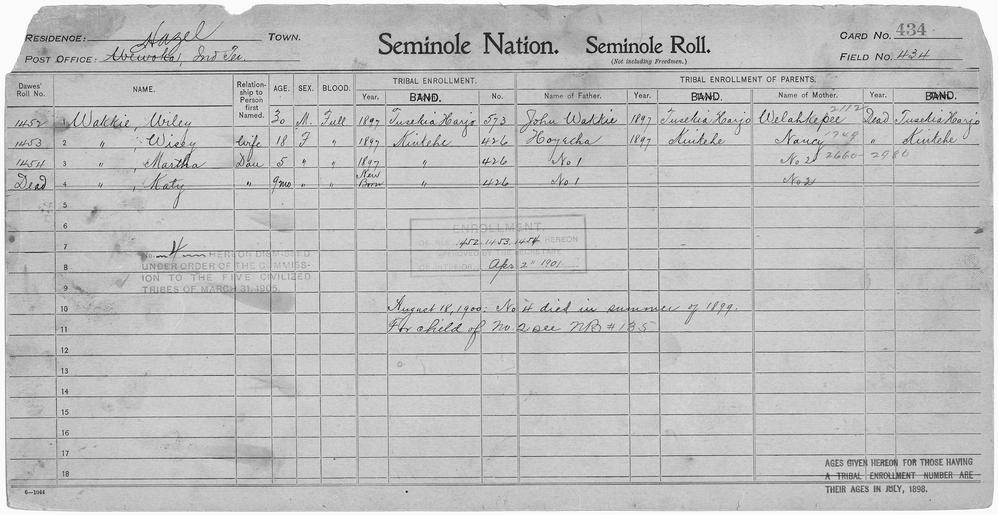 RESIDENCE: Hazel TOWN.
POST OFFICE: Wewoka, Ind Ter.
Seminole Nation. Seminole Roll.
(Not including Freedmen.)
CARD NO. 434
FIELD NO. 434
Dawes' Roll No. NAME. Relationship to Person first Named. AGE. SEX. BLOOD. TRIBAL ENROLLMENT. TRIBAL ENROLLMENT OF PARENTS.
Year. BAND. No. Name of Father. Year. BAND. Name of Mother. Year. BAND.
1452 1 Wakkie, Wiley 30 M. Full 1897 Tusekia Harjo 573 John Wakkie 1897 Tusekia Harjo Welahkepee 2112 Dead Tusekia Harjo
1453 2 " , Wisey Wife 18 F " 1897 Nintehe 426 Hoyecha 1897 Nintehe Nancy 1749 " Nintehe
1454 3 " , Martha Dau 5 " " 1897 " 426 No 1 No 2 2660-2980
Dead 4 " , Katy " 9mo " " New Born " 426 No 1 No 2
5
6
ENROLLMENT
7 HEREON DISMISSED 1452.1453.1454 HEREON
UNDER ORDER OF THE COMMISS-
8 Apr 2" 1901
ION TO THE FIVE CIVILIZED
9 TRIBES OF MARCH 31, 1905.
10 August 18, 1900: No 4 died in summer of 1899.
11 For child of No. 2 see NB #135
12
13
14
15
16
17
18
AGES GIVEN HEREON FOR THOSE HAVING
A TRIBAL ENROLLMENT NUMBER ARE
THEIR AGES IN JULY, 1898.
6—1044